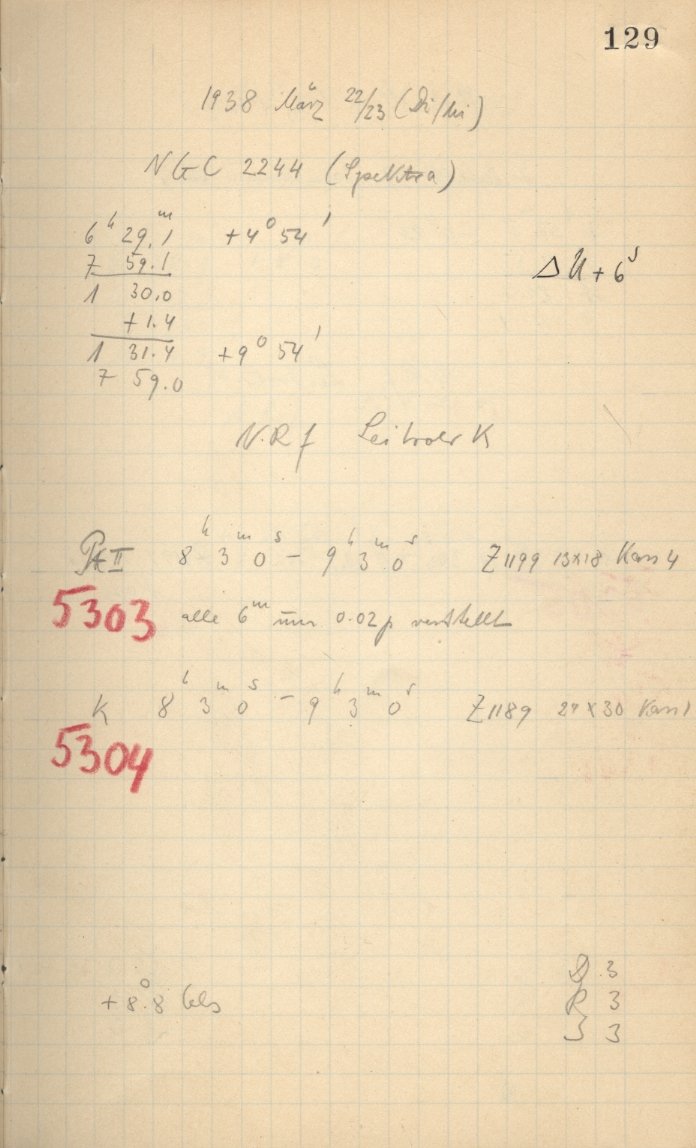 129
1938 März 22/23 (Di/Mi)
NGC 2244 (Spektra)
6h 29.1m +4° 54'
7 59.1
ΔU + 6s
1 30.0
+1.4
1 31.4 +9° 54'
7 59.0
N.R.f Leitrohr K
II 8h 3m 0s – 9h 3m 0s Z1199 13×18 Kass 4
5303 alle 6m um 0.02p verstellt
K 8h 3m 0s – 9h 3m 0s Z1189 24×30 Kass 1
5304
D 3
+8°.8 Cels R 3
S 3